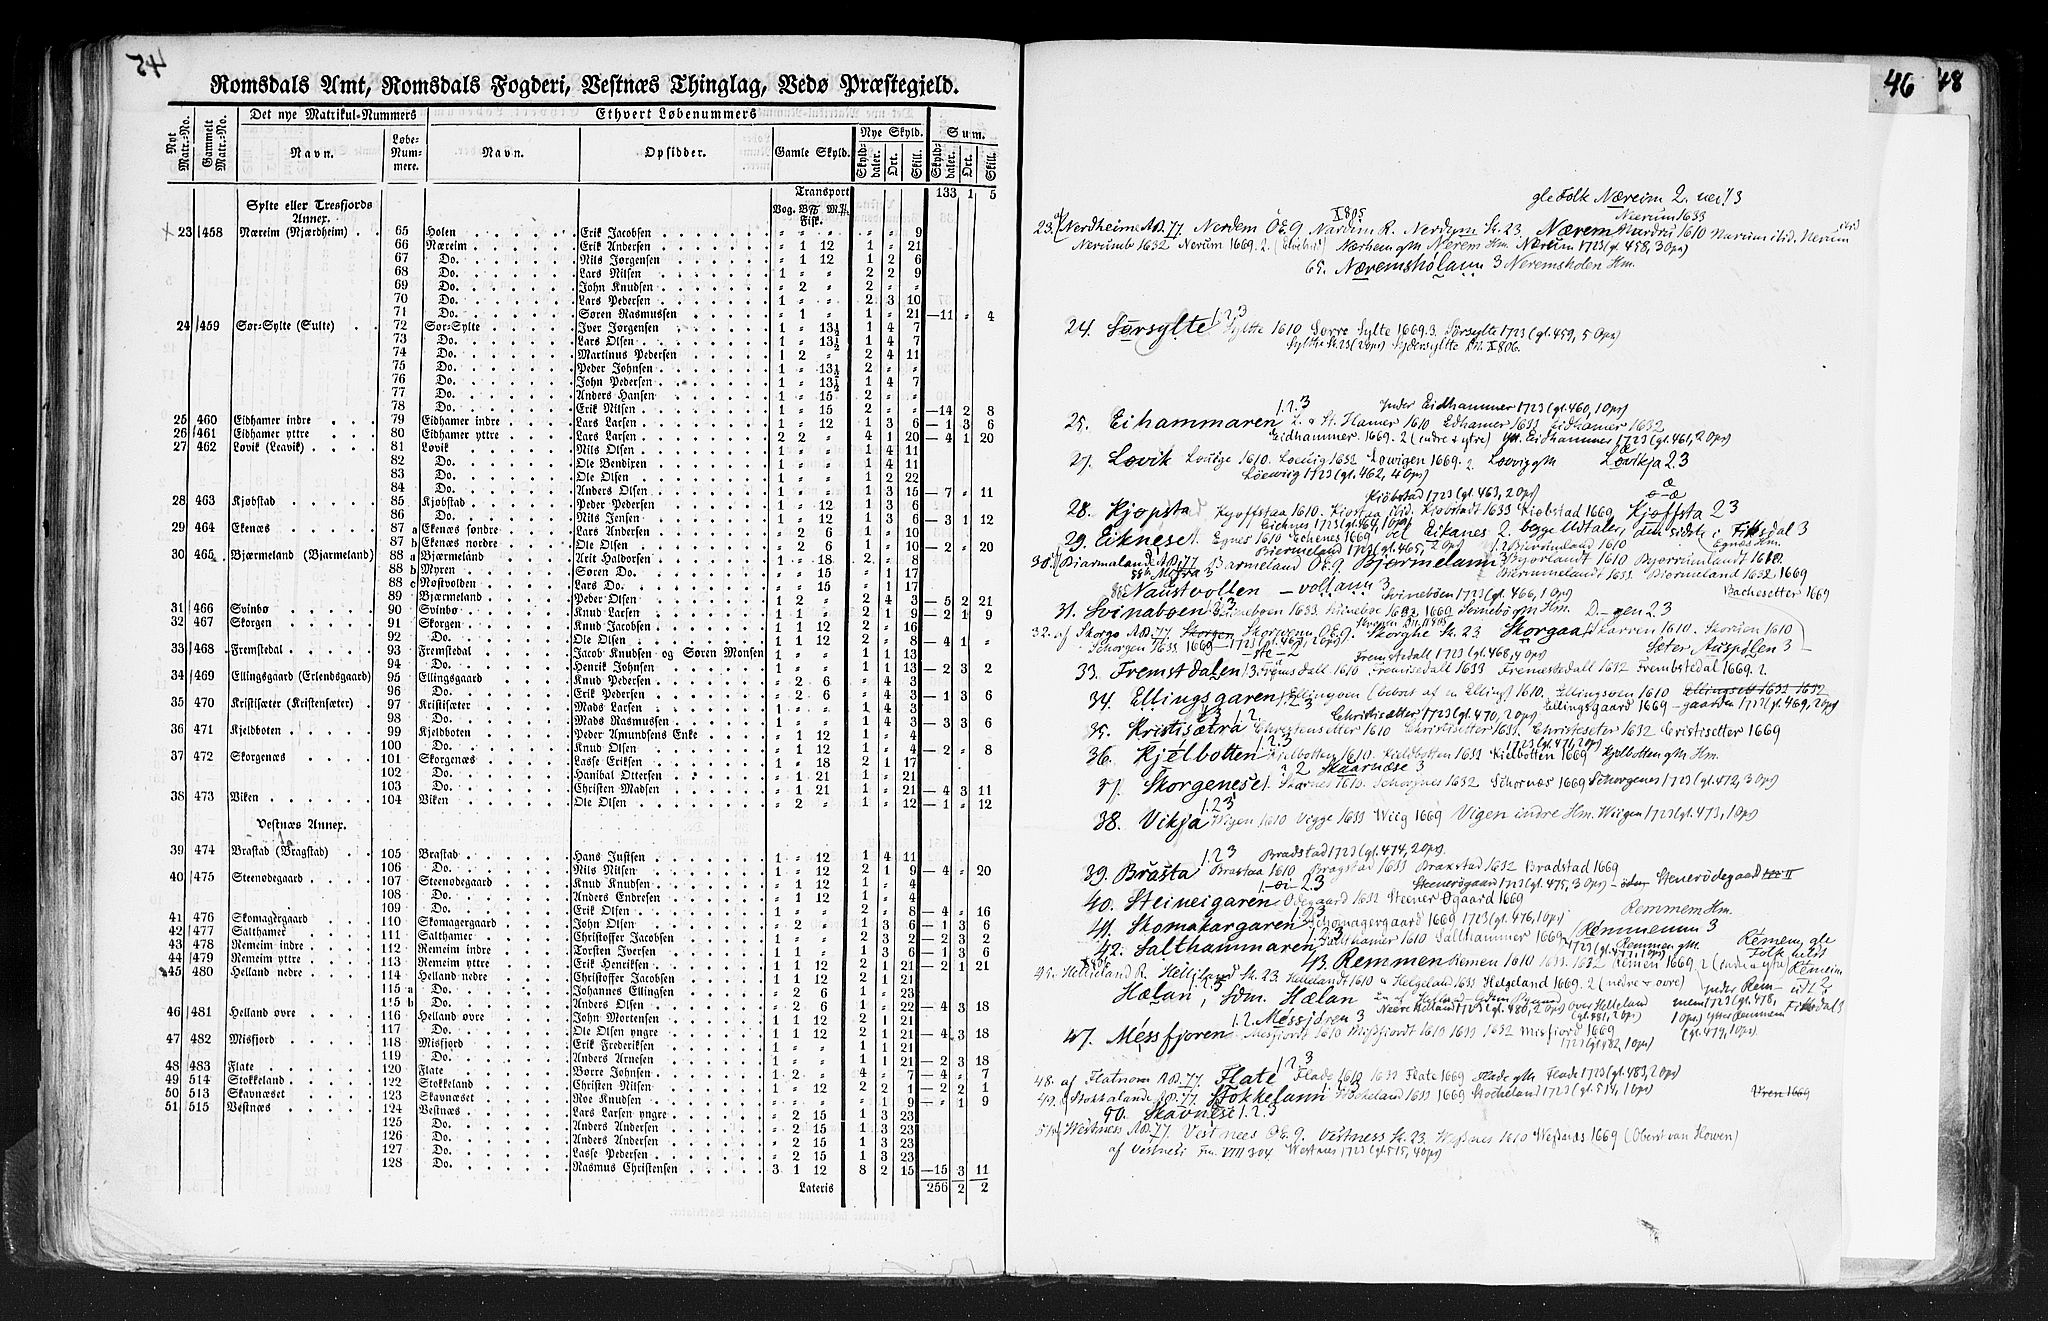 54
Romsdals Amt, Romsdals Fogderi, Vestnæs Thinglag, Vedø Præstegjeld.
Nyt Matr.-No. | Gammelt Matr.-No. | Det nye Matrikul-Nummers Navn. | Løbe-Nummere. | Ethvert Løbenummers Navn. | Opsidder. | Gamle Skyld. | Nye Skyld. Skylddaler. Ort. Skill. | Sum. Skylddaler. Ort. Skill.
Transport 133 1 5
Sylte eller Tresfjords Annex. Vog. Fisk.
23 458 Næreim (Njærdheim) . 65 Holen Erik Jacobsen " " " " " 9
66 Næreim Erik Andersen " 1 12 1 " 21
67 Do. Nils Jørgensen " 1 12 1 2 6
68 Do. Lars Nilsen 1 " " 2 2 9
69 Do. John Knudsen " 2 " 2 " "
70 Do. Lars Pedersen 1 " " 2 3 10
71 Do. Søren Rasmussen " 1 " 1 " 21 —11 " 4
24 459 Sør-Sylte (Sulte) 72 Sør-Sylte Iver Jørgensen 1 " 13½ 1 4 7
73 Do. Lars Olsen 1 " 13½ 1 4 7
74 Do. Martinus Pedersen 1 2 " 2 4 11
75 Do. Peder Johnsen 1 " 13½ 2 " "
76 Do. John Pedersen 1 " 13½ 1 4 7
77 Do. Anders Hansen 1 " 15 2 " "
78 Do. Erik Nilsen 1 " 15 2 " " —14 2 8
25 460 Eidhamer indre 79 Eidhamer indre Lars Larsen 1 " 12 1 3 6 — 1 3 6
26 461 Eidhamer yttre 80 Eidhamer yttre Lars Larsen 2 2 " 4 1 20 — 4 1 20
27 462 Løvik (Leavik) 81 Løvik Nils Olsen 1 " " 1 4 11
82 Do. Ole Bendixen 1 " " 1 4 11
83 Do. Ole Olsen 1 " " 1 2 22
84 Do. Anders Olsen 1 " " 1 3 15 — 7 " 11
28 463 Kjøbstad 85 Kjøbstad Peder Pedersen 1 " 12 1 3 6
86 Do. Nils Jensen 1 " 12 1 3 6 — 3 1 12
29 464 Ekenæs 87 a Ekenæs søndre Lars Andersen " 2 6 1 " 10
87 b Ekenæs nordre Ole Olsen " 2 6 1 " 10 — 2 " 20
30 465 Bjærmeland (Bjarmeland) 88 a Bjærmeland Arit Haldorsen 1 " 18 2 " 8
88 b Myren Søren Do. " " 15 " 1 17
88 c Nøstvolden Lars Do. " " 15 " 1 17
89 Bjærmeland Peder Olsen 1 2 " 2 4 3 — 5 2 21
31 466 Svinbø 90 Svinbø Knud Larsen 1 " " 2 1 9 — 2 1 9
32 467 Skorgen 91 Skorgen Knud Jacobsen 1 1 12 2 " 16
92 Do. Ole Olsen 1 1 12 2 " 8 — 4 1 "
33 468 Fremstedal 93 Fremstedal Jacob Knudsen og Søren Monsen 1 " " 1 1 13
94 Do. Henrik Johnsen 1 " " 1 1 13 — 2 3 2
34 469 Ellingsgaard (Erlendsgaard) 95 Ellingsgaard Knud Pedersen " 2 6 " 4 3
96 Do. Erik Pedersen " 2 6 " 4 3 — 1 3 6
35 470 Kristisæter (Kristensæter) 97 Kristisæter Mads Larsen 1 " " 1 4 3
98 Do. Mads Rasmussen 1 " " 1 4 3 — 3 3 6
36 471 Kjeldboten 99 Kjeldboten Peder Amundsens Enke 1 " 12 1 " 4
100 Do. Knud Olsen 1 " 12 1 " 4 — 2 " 8
37 472 Skorgenæs 101 Skorgenæs Lasse Eriksen 1 " 18 2 1 17
102 Do. Hanibal Ottersen " 1 21 1 " 21
103 Do. Christen Madsen " 1 21 1 " 21 — 4 3 11
38 473 Viken 104 Viken Ole Olsen " 2 " 1 " 12 — 1 " 12
Vestnæs Annex.
39 474 Brastad (Bragstad) 105 Brastad Hans Justsen 1 " 12 1 4 11
106 Do. Nils Nilsen 1 " 12 2 1 9 — 4 " 20
40 475 Steenødegaard 107 Steenødegaard Knud Knudsen " 1 12 1 " 4
108 Do. Anders Endresen " 1 12 1 " 4
109 Do. Erik Olsen 1 " " 2 " 8 — 4 " 16
41 476 Skomagergaard 110 Skomagergaard John Olsen " 2 " 1 3 6 — 1 3 6
42 477 Salthamer 111 Salthamer Christoffer Jacobsen 1 " " 2 3 2 — 2 3 2
43 478 Remeim indre 112 Remeim indre Torsten Iversen 1 " " 1 3 6 — 1 3 6
44 479 Remeim yttre 113 Remeim yttre Erik Henriksen 1 1 12 2 1 21 — 2 1 21
45 480 Helland nedre 114 Helland nedre Christoffer Jacobsen 1 1 12 2 1 21
115 a Do. Johannes Ellingsen " 2 6 1 " 23
115 b Do. Anders Olsen " 2 6 1 " 22 — 4 3 18
46 481 Helland øvre 116 Helland øvre John Mortensen 1 1 12 2 1 21
117 Do. Ole Olsen yngre 1 1 12 2 1 21 — 4 3 18
47 482 Misfjord 118 Misfjord Erik Frederiksen 1 " " 1 1 21
119 Do. Anders Arnesen 1 " " 1 1 21 — 2 3 18
48 483 Flate 120 Flate Børre Johnsen 1 2 " 4 " 7 — 4 " 7
49 514 Stokkeland 122 Stokkeland Christen Nilsen 1 " 12 2 2 1 — 2 2 1
50 513 Skavnæset 123 Skavnæset Roe Knudsen " " " " 1 9 — " 1 9
51 515 Vestnæs 124 Vestnæs Lars Larsen yngre " 2 15 1 3 23
125 Do. Anders Andersen " 2 15 1 3 23
126 Do. Anders Andersen " 2 15 1 3 23
127 Do. Lasse Pedersen " 2 15 1 3 23
128 Do. Rasmus Christensen 3 1 12 8 2 15 —15 3 11
Lateris 256 2 2
46 48
gle Folk Næreim 2.
Nærum 1633
23. af Nerdheim AB. 77 Nerdem OE 9 Nardum R. Nerdym Sk. 23. Nærem
Nerumb 1632 Nerum 1669. 2. Nærhem gM Nerem Hm. Nerum 1723 (gl. 458, 3 Ops)
65. Næremshølann 3 Neremsholen Hm.
24. Sørsylte 1.2.3 Syltte 1610 Sørre Sylte 1669. 3. Sørsylte 1723 (gl. 459, 5 Ops)
Sylthe Sk. 23 (2 Ops) Sydersyltte DN. X 806.
25. Eihammaren 1.2.3 Inder Eidhammer 1723 (gl. 460, 1 Ops)
Hamer 1610 Edhamer 1633 Eidhamer 1632
Eidhammer 1669. 2 (indre + ytre) Eidhammer 1723 (gl. 461, 2 Ops)
27. Løvik Løuige 1610. Løeuig 1632 Løwigen 1669. 2 Løevig gM Løvikja 2.3
Løewig 1723 (gl. 462, 4 Ops)
Kiøbstad 1723 (gl. 463, 2 Ops)
28. Kjopsta Kjoffstaa 1610. Kiøstaa ibid. Kiøbstadt 1633 Kiøbstad 1669 Kjoffsta 2 3
Eichnes 1723 (gl. 464, 1 Ops)
29. Eiknese 1. Egnes 1610 Echenes 1669 Eikanes 2 begge Udtaler, den sidste i Fiksdal 3
Egnes Hm.
Biermeland 1723 (gl. 465, 2 Ops) 1.2 Bierumland 1610
30. af Biarmaland AB. 77 Barmeland OE. 9 Bjermelann 3 Bjorlandt 1610 Bjorrumlandt 1610
88b Myra 3 Biermelandt 1633 Biormeland 1632 1669
88c Naustvollen — vollann 3 Svinebøen 1723 (gl. 466, 1 Ops) Bachesetter 1669
31. Svinabøen 2.3 Suinebøen 1633 Suinebøe 1632 1669 Svinebø gM Hm. D—gen 2.3
32. af Skorgo AB. 77 Skorgen OE. 9. Skorghe Sk. 23 Skorgaa Skarren 1610. Skoruen 1610
Schorgen 1633 1669 — 1723 (gl. 467, 2 Ops) Seter Auspølen 3
Fremstedall 1723 (gl. 468, 4 Ops)
33. Fremstdalen 1.3 Fremsdall 1610 Fremisedall 1633 Fremestedall 1632 Frembstedal 1669. 2
34. Ellingsgaren 1.2.3 Ellingøen 1610. Ellingsven 1610
Ellingsgaard 1669 — gaarden 1723 (gl. 469, 2 Ops)
Christisetter 1723 (gl. 470, 2 Ops)
35. Kristisætra 1.2. Christensetter 1610 Christisetter 1633. Christeseter 1632 Cristisetter 1669
1723 (gl. 471, 2 Ops)
36. Kjelbotten 1.2.3 Kielbotten 1610. Kieldbotten 1633 Kielbotten 1669 Kjelbotten gM Hm.
2 Skaarnese 3
37. Skorgenese 1. Skarnes 1610. Schorgnes 1632 Schornæs 1669 Schorgenes 1723 (gl. 472, 3 Ops)
38. Vikja 1.2.3 Wigen 1610 Vigge 1633 Wiig 1669 Vigen indre Hm. Wiigen 1723 (gl. 473, 1 Ops)
Bradstad 1723 (gl. 474, 2 Ops).
39. Bråsta 1.2.3 Brastaa 1610 Bragstad 1633 Braxstad 1632 Bradstad 1669
Steenerødgaard 1723 (gl. 475, 3 Ops) Stenerødegaard
40. Steineigaren Ødegaard 1632 Steener Øgaard 1669 Remmem Hm.
41. Skomakargaren 1.2.3 Schomagergaard 1669 1723 (gl. 476, 1 Ops) Remmemm 3
42. Salthammaren 1.2.3 Salthamer 1610 Salthammer 1669 Remmen gM Remem, gle Folk
43. Remmen Remen 1610 1633. 1632 Remen 1669. 2 (indre + ytre) Remeim
Helliland R. Helliland Sk. 23 Helgeland 1633 Helgeland 1669. 2 (nedre + øvre)
Hælan, Sdm. Hælan
Nedre Helland 1723 (gl. 480, 2 Ops) Over Helleland (gl. 481, 2 Ops)
47. Messfjoren 1.2. Messjoren 3 Missfiordt 1610 1633 1632 Misfiord 1669
1723 (gl. 482, 1 Ops) (gl. 479, 1 Ops)
48. af Flatnom AB. 77. Flate 1.2.3 Flade 1610 1632 Flate 1669 Flade gM Flade 1723 (gl. 483, 2 Ops)
49. af Stokkalande AB. 77. Stokkelann Stocheland 1633 1669 Stocheland 1723 (gl. 514, 1 Ops) Vren 1669
50. Skavnese 1.2.3
51. af Westness AB. 77. Vestnees OE. 9. Vestness Sk. 23. Westnes 1610 Westnæs 1669 (Oberst van Howen)
af Vestnesi Fm. VIII 304. Westnes 1723 (gl. 515, 4 Ops)